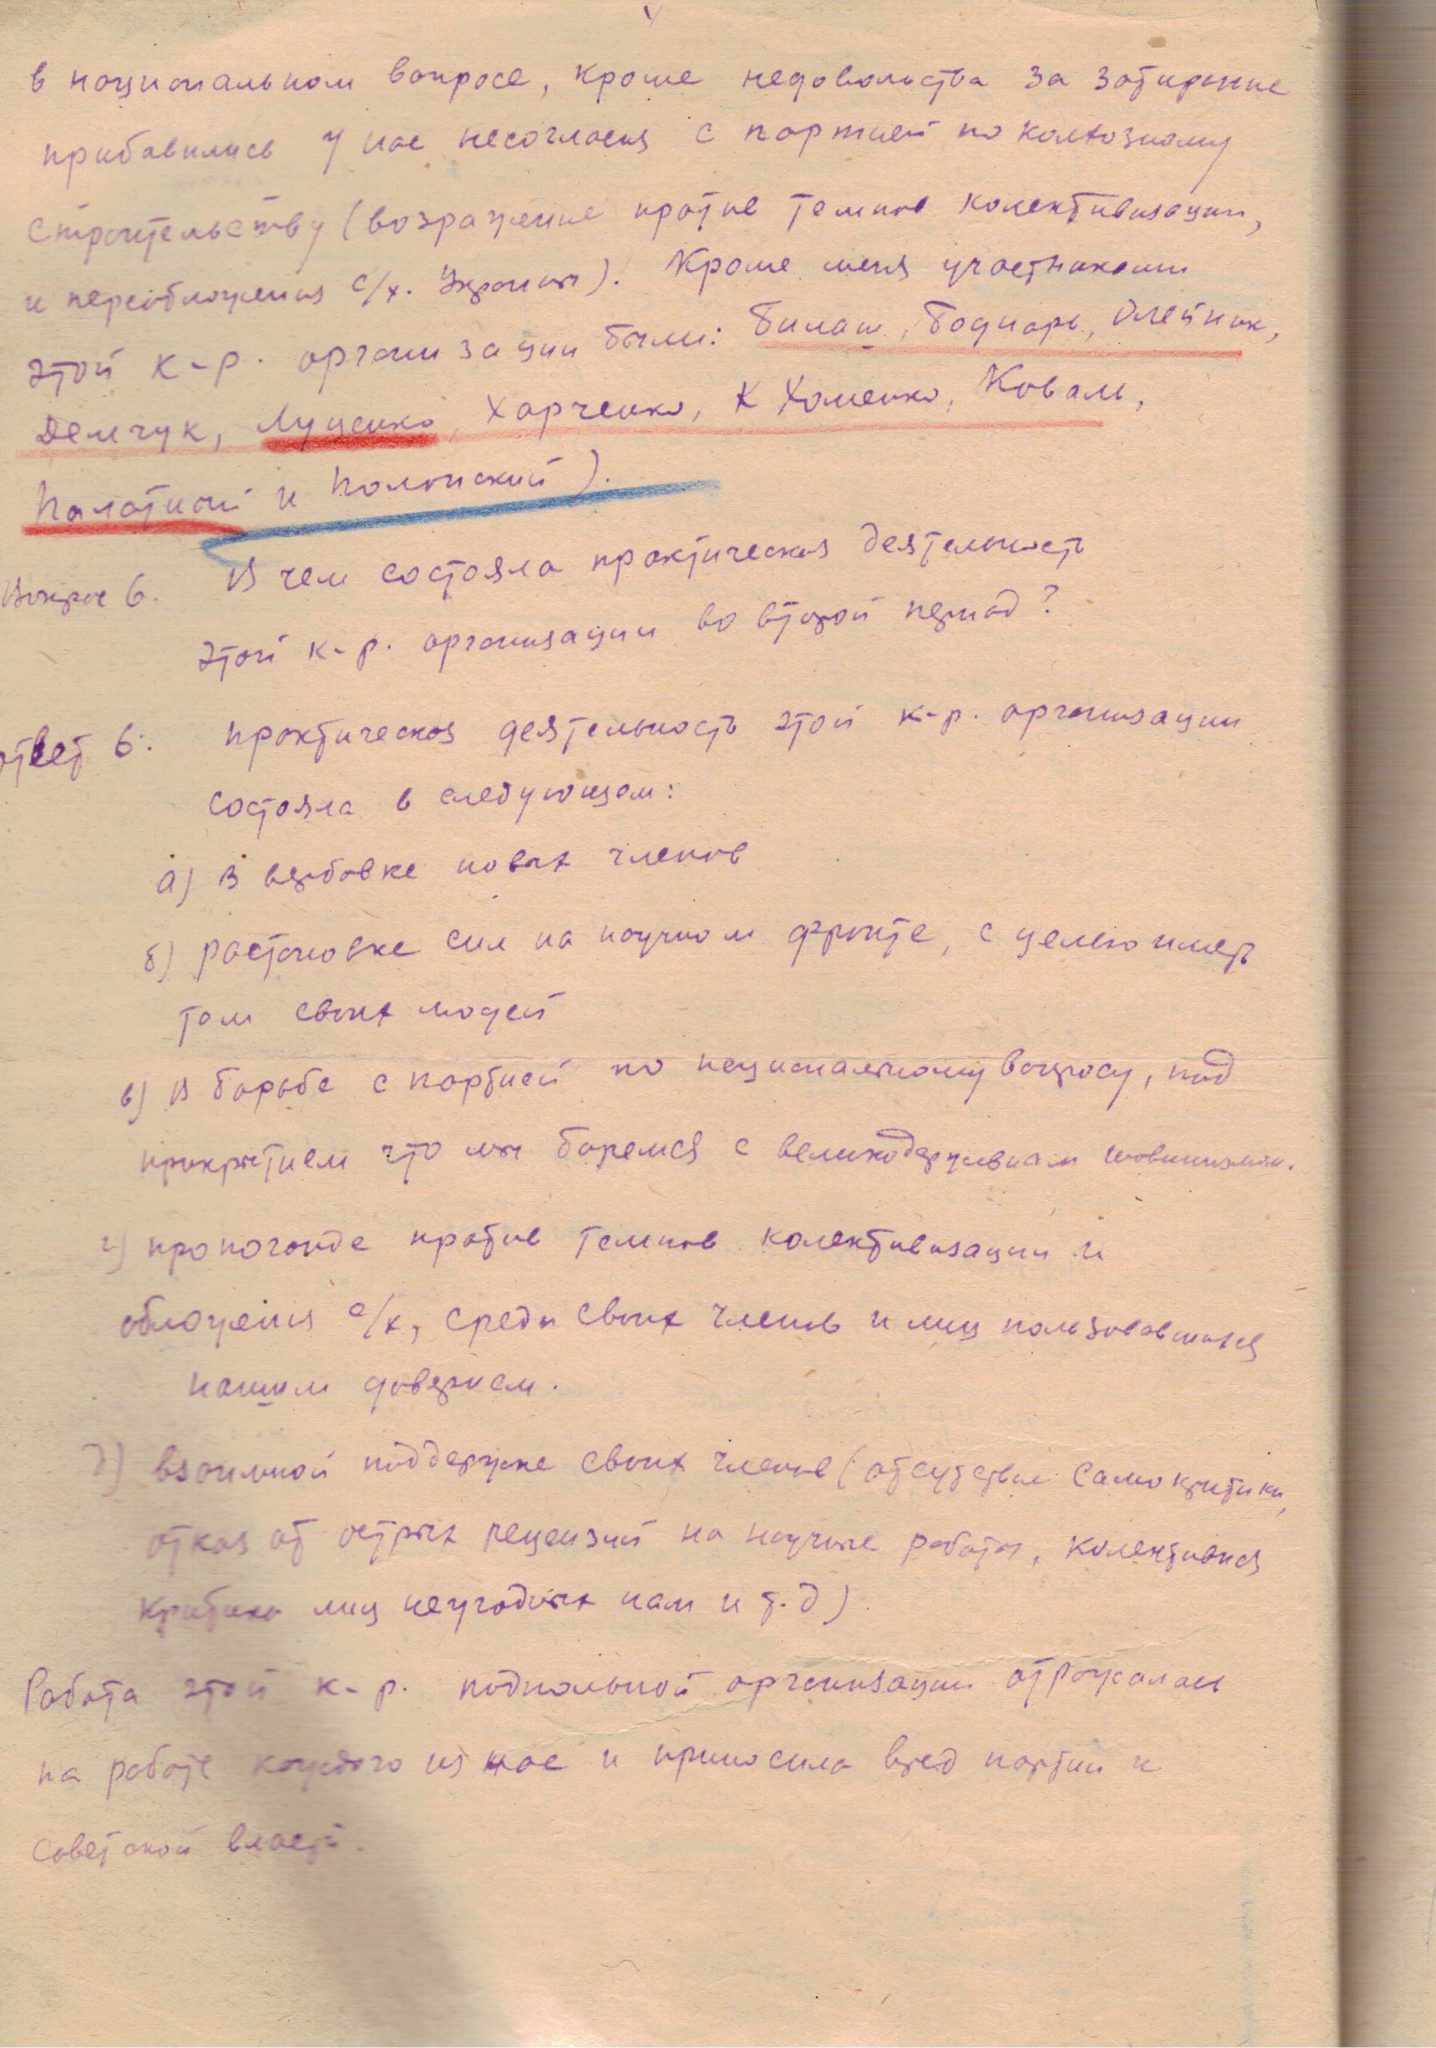 в национальном вопросе, кроме недовольства за затирание
прибавились у нас несогласия с партией по колхозному
строительству (возражение против темпов колективизации,
и переобложения с/х. Украины). Кроме меня участниками
этой к-р. организации были: Билаш, Боднарь, Олейник,
Демчук, Луценко, Харченко, Хоменко, Коваль,
Палатной и Полонский).
Вопрос 6. В чем состояла практическая деятельность
этой к-р. организации во второй период?
ответ 6. Практическая деятельность этой к-р. организации
состояла в следующем:
а) в вербовке новых членов
б) растановке сил на научном фронте, с целью иметь
там своих людей
в) в борьбе с партией по национальному вопросу, под
прикрытием что мы боремся с великодержавным шовинизмом.
г) пропоганде против темпов колективизации и
обложения с/х, среди своих членов и лиц пользовавшихся
нашим доверием.
д) взаимной поддержке своих членов (отсутствие самокритики,
отказ от острых рецензий на научные работы, колективная
критика лиц неугодных нам и т.д)
Работа этой к-р. подпольной организации отражалась
на работе каждого из нас и приносила вред партии и
советской власти.